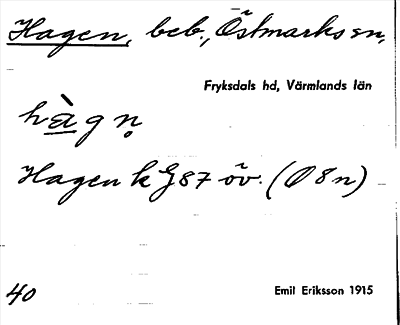 Hagen, beb., Östmarks sn,
Fryksdals hd, Värmlands län
hàgṇ
Hagen k G87 öv. (Ö 8 n)
40
Emil Eriksson 1915